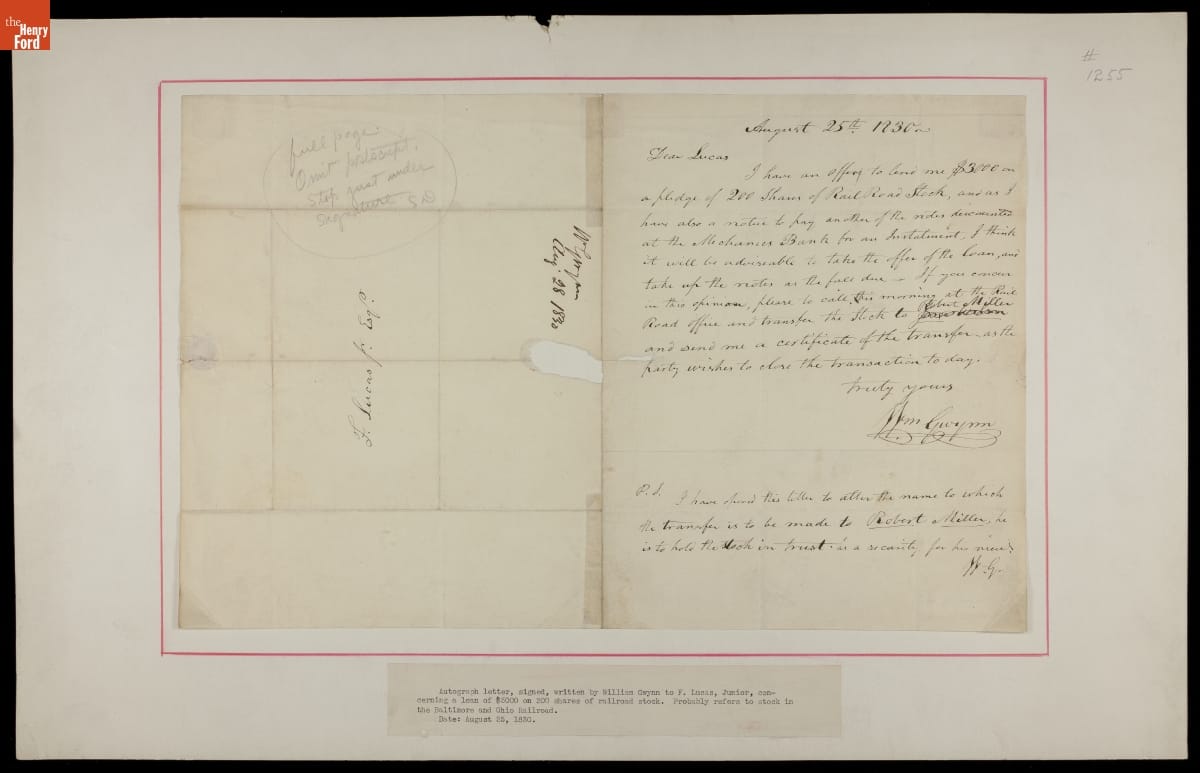 the
Henry
Ford
#
1255
full page.
Omit postscript,
stop just under
signature SD
Wm Gwynn
Aug. 28 1830
F. Lucas jr. Esqr.
August 25th 1830
Dear Lucas
I have an offer to lend me $3000 on
a pledge of 200 Shares of Rail Road Stock, and as I
have also a notice to pay another of the notes discounted
at the Mechanics Bank for an Instalment, I think
it will be adviseable to take the offer of the loan, and
take up the notes as the fall due - If you concur
in this opinion, please to call this morning at the Rail
Robert Miller
Road office and transfer the Stock to
and send me a certificate of the transfer - as the
party wishes to close the transaction to day.
truly yours
Wm Gwynn
P.S. I have opened this letter to alter the name to which
the transfer is to be made to Robert Miller, he
is to hold the stock in trust as a security for his
W. G.
Autograph letter, signed, written by William Gwynn to F. Lucas, Junior, con-
cerning a loan of $3000 on 200 shares of railroad stock. Probably refers to stock in
the Baltimore and Ohio Railroad.
Date: August 25, 1830.